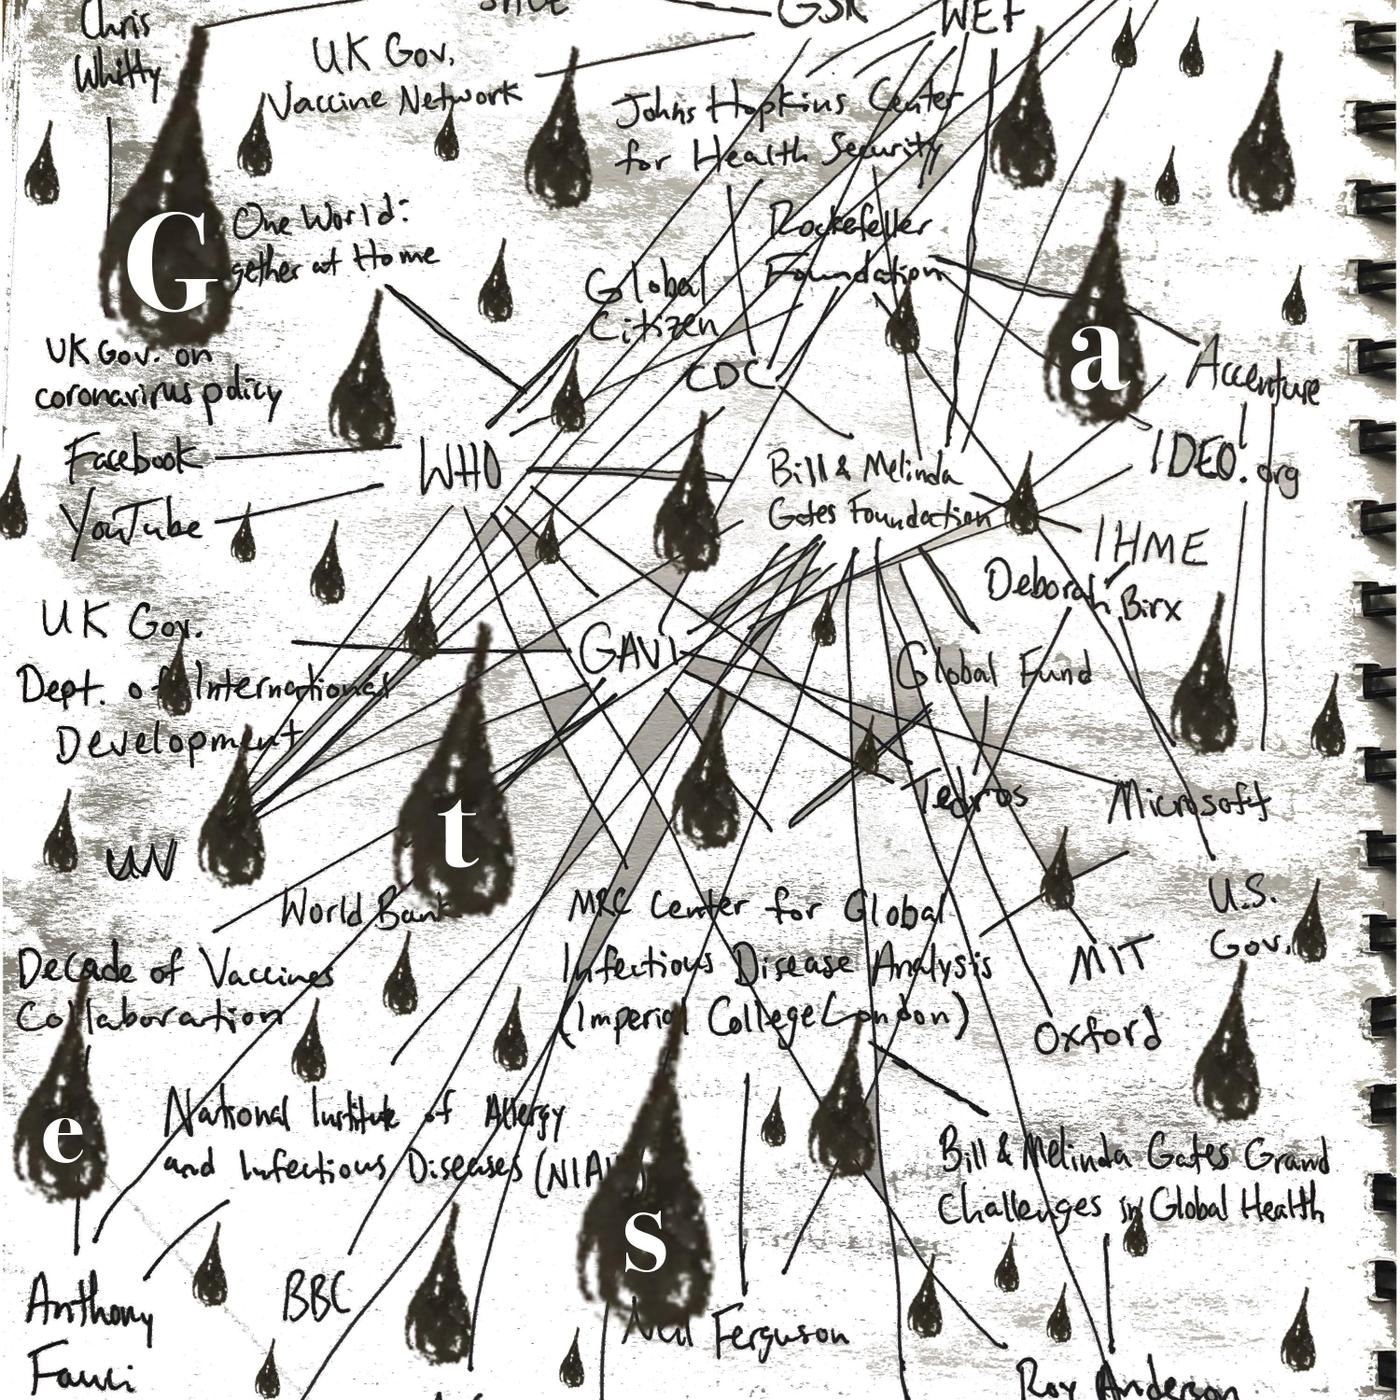 Chris
Whitty
GSK
WEF
UK Gov.
Vaccine Network
Johns Hopkins Center
for Health Security
G
One World:
gether at Home
Rockefeller
Foundation
Global
Citizen
UK Gov. on
coronavirus policy
CDC
a
Accenture
Facebook
WHO
YouTube
Bill & Melinda
Gates Foundation
IDEO.org
IHME
Deborah Birx
UK Gov.
Dept. of International
Development
GAVI
Global Fund
t
Tedros
Microsoft
UN
World Bank
MRC Center for Global
Infectious Disease Analysis
(Imperial College London)
U.S.
Gov.
MIT
Oxford
Decade of Vaccines
Collaboration
e
National Institute of Allergy
and Infectious Diseases (NIAI
s
Bill & Melinda Gates Grand
Challenges in Global Health
Anthony
Fauci
BBC
Neil Ferguson
Roy Anderson